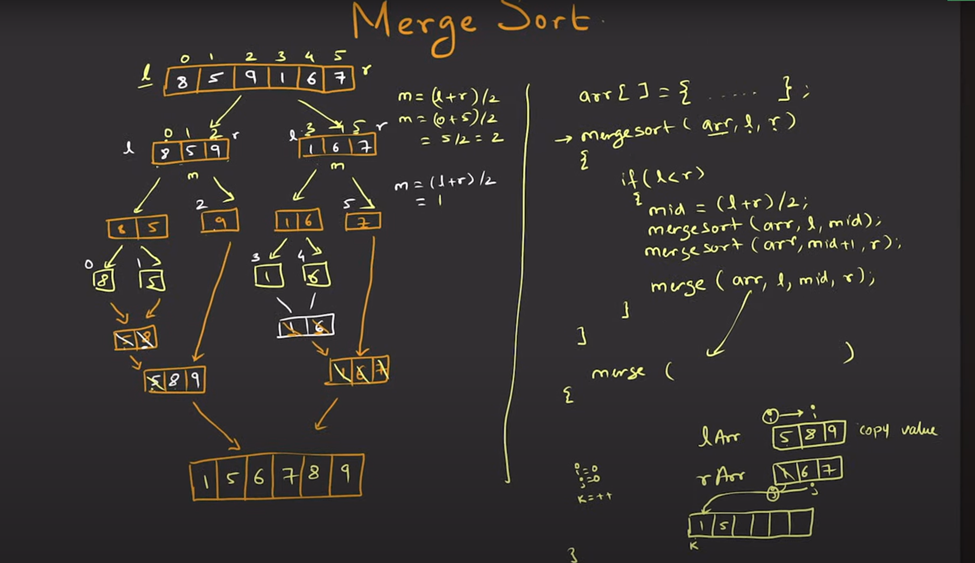 Merge Sort
0 1 2 3 4 5
l 8 5 9 1 6 7 r
m = (l+r)/2
m = (0+5)/2
= 5/2 = 2
0 1 2
l 8 5 9 r
m
3 4 5
l 1 6 7 r
m
m = (l+r)/2
= 1
8 5
2
9
1 6
5
7
0 1
8 5
3 4
1 6
5 8
1 6
5 8 9
1 6 7
1 5 6 7 8 9
arr[ ] = { ...... };
→ mergesort ( arr, l, r)
{
if (l<r)
{
mid = (l+r)/2;
mergesort (arr, l, mid);
mergesort (arr, mid+1, r);
merge ( arr, l, mid, r);
}
}
merge ( )
{
i → i
lArr 5 8 9 copy value
i=0
j=0
k=++
rArr 1 6 7
j j
1 5
k
}